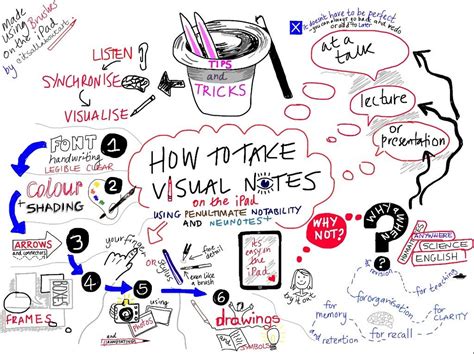 made
using Brushes
on the iPad
by
LISTEN
SYNCHRONISE
VISUALISE
TIPS
AND
TRICKS
it doesn't have to be perfect
at a
talk
lecture
or
presentation
FONT
handwriting
LEGIBLE CLEAR
1
Colour
+ SHADING
2
ARROWS
and connectors
3
4
FRAMES
HOW TO TAKE
VISUAL NOTES
on the iPad
USING PENULTIMATE NOTABILITY
AND NEUNOTES+
your finger
or
stylus
for detail
even like a
brush
5
using
PHOTOS
and
ANNOTATIONS
6
drawings
and
SYMBOLS
It's
easy in
the
iPad
WHY
NOT?
WHY
WHEN
?
HUMANITIES
ANYWHERE
SCIENCE
ENGLISH
revision
for teaching
for organisation
for
memory
for
CLARITY
and retention
for recall